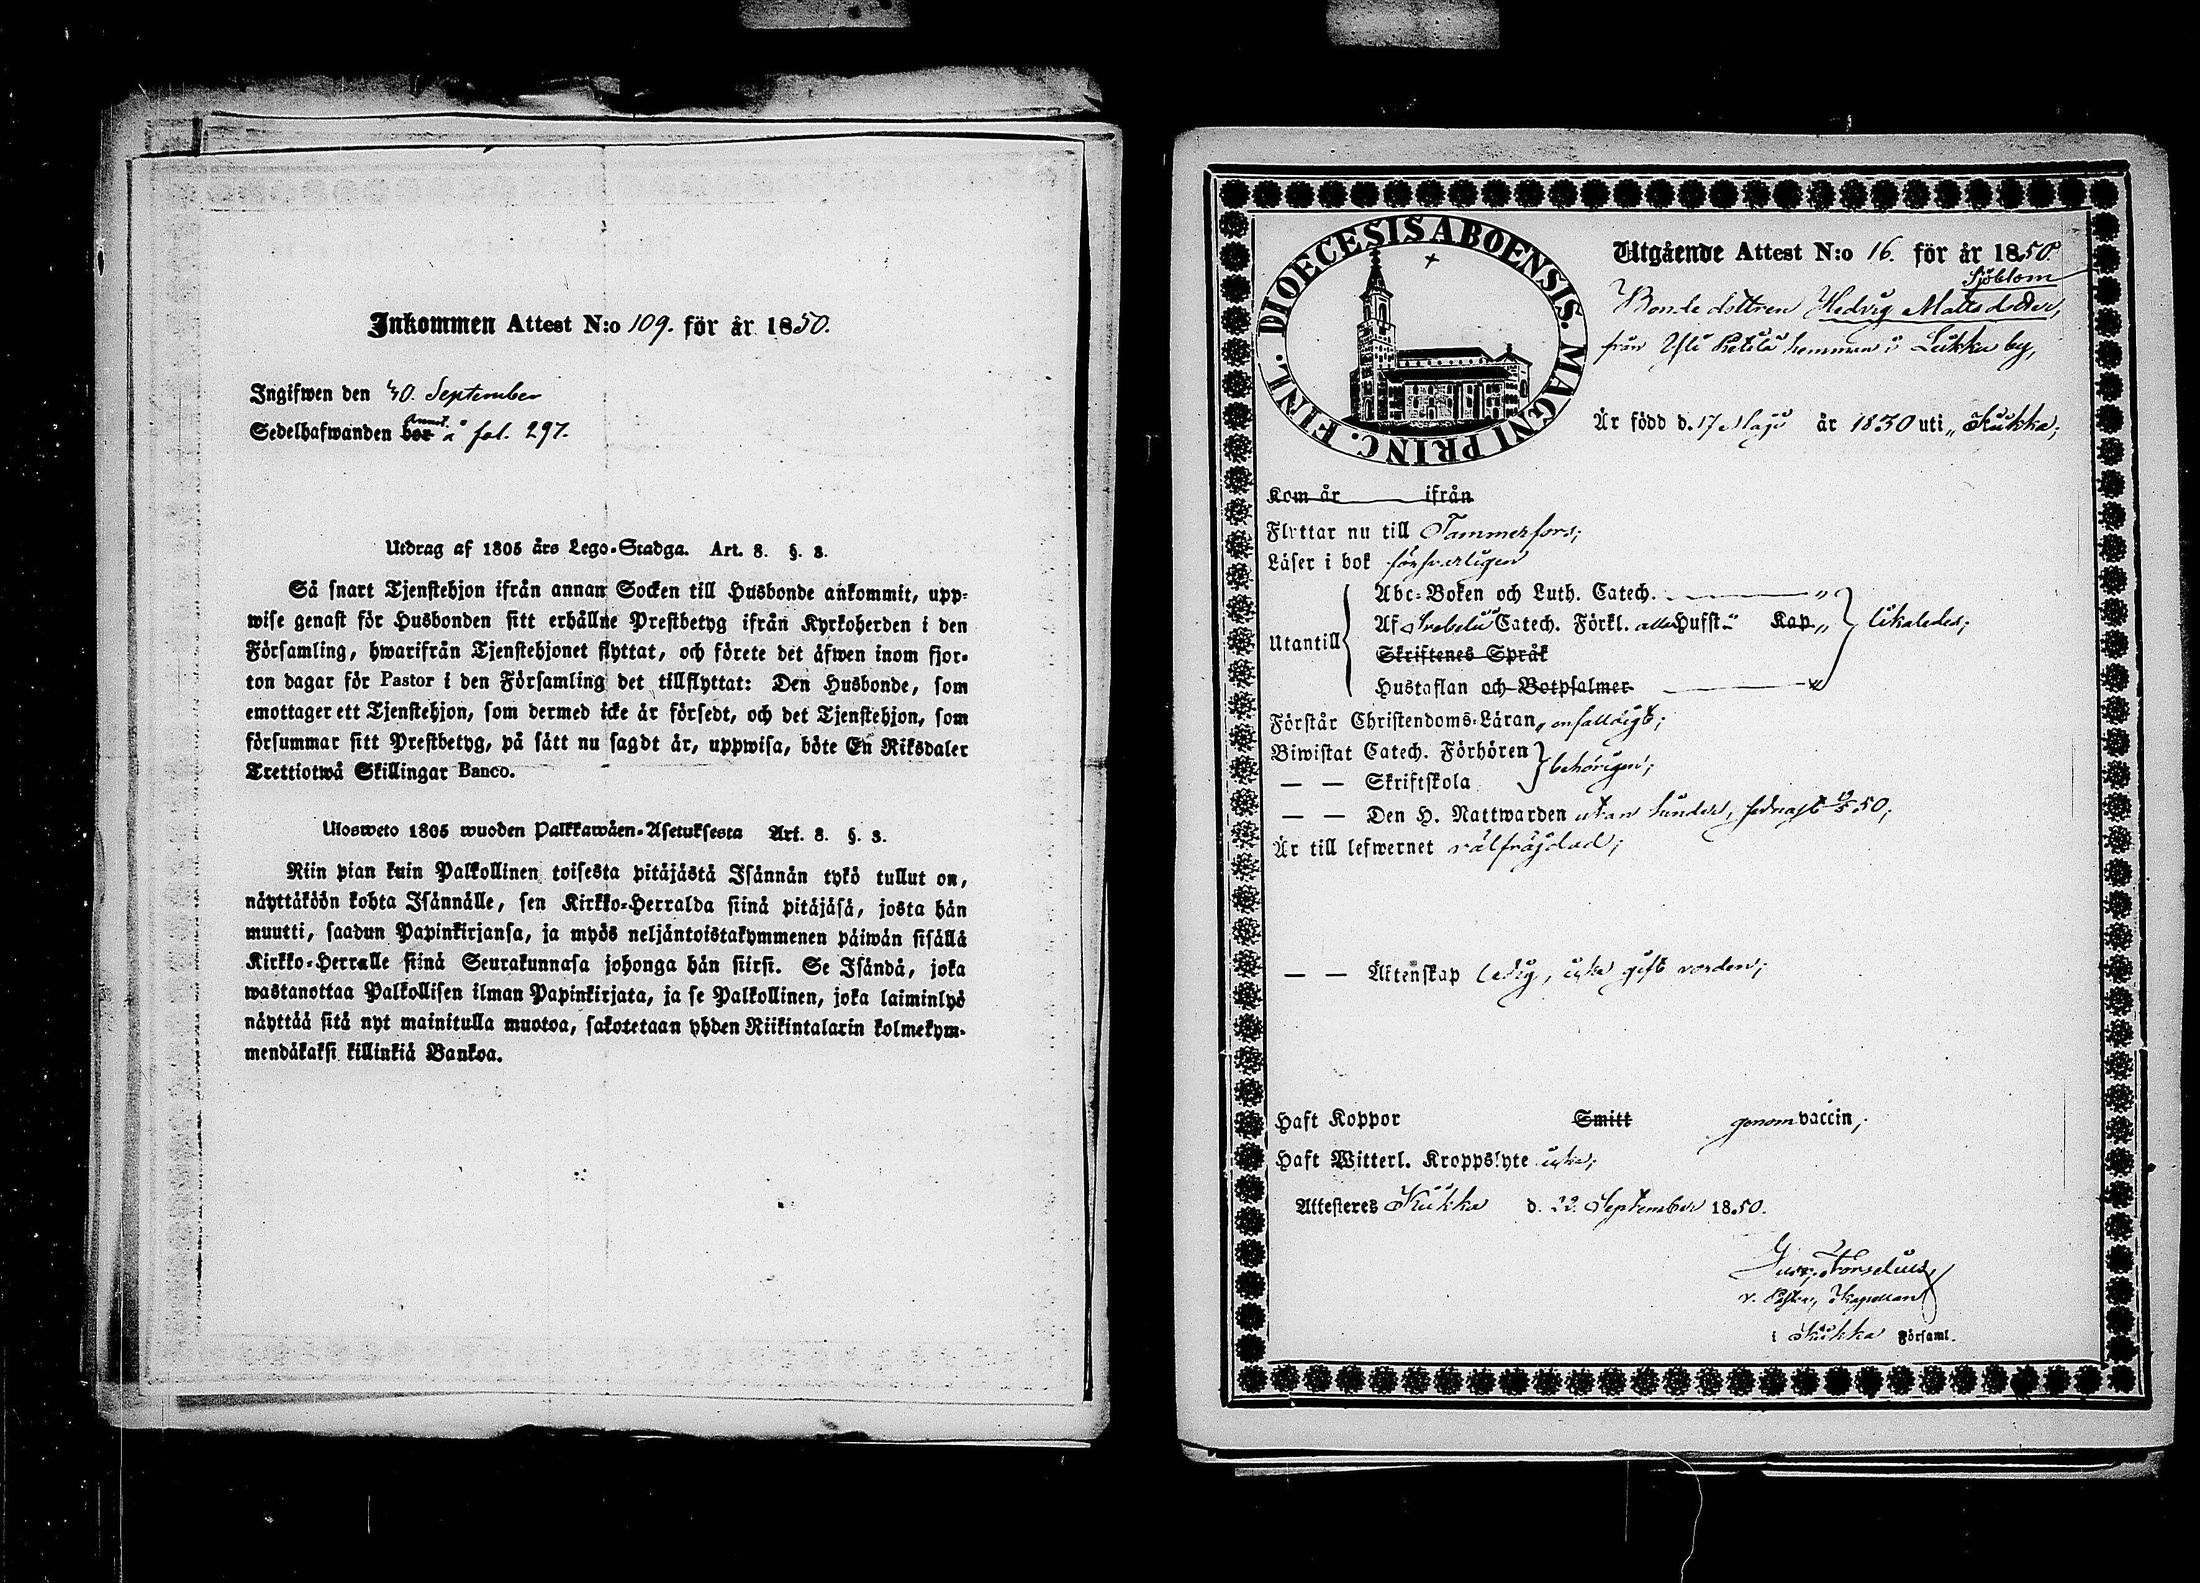 Inkommen Attest N:o 109. för år 1850.
Ingifwen den 30. September
Sedelhafwanden bor Annot. å fol. 297.
Utdrag af 1805 års Lego-Stadga. Art. 8. §. 3.
Så snart Tjenstehjon ifrån annan Socken till Husbonde ankommit, upp-
wise genast för Husbonden sitt erhållne Prestbetyg ifrån Kyrkoherden i den
Församling, hwarifrån Tjenstehjonet flyttat, och förete det äfwen inom fjor-
ton dagar för Pastor i den Församling det tillflyttat: Den Husbonde, som
emottager ett Tjenstehjon, som dermed icke är försedt, och det Tjenstehjon, som
försummar sitt Prestbetyg, på sätt nu sagdt är, uppwisa, böte En Riksdaler
Trettiotwå Skillingar Banco.
Ulosweto 1805 wuoden Palkkawäen-Asetuksesta Art. 8. §. 3.
Niin pian kuin Palkollinen toisesta pitäjästä Isännän tykö tullut on,
näyttäköön kohta Isännälle, sen Kirkko-Herralda siinä pitäjäsä, josta hän
muutti, saadun Papinkirjansa, ja myös neljäntoistakymmenen päiwän sisällä
Kirkko-Herralle siinä Seurakunnasa johonga hän siirsi. Se Isändä, joka
wastanottaa Palkollisen ilman Papinkirjata, ja se Palkollinen, joka laiminlyö
näyttää sitä nyt mainitulla muotoa, sakotetaan yhden Riikintalarin kolmekym-
mendäkaksi killinkiä Bankoa.
DIOECESIS ABOENSIS. MAGNI PRINC. FINL.
Utgående Attest N:o 16. för år 1850.
Sjöblom
Bondedottren Hedvig Mattsdotter,
från Yli Ketola hemman i Lükka by,
Är född d. 17 Maji år 1830 uti Kükka;
Kom år ifrån
Flyttar nu till Tammerfors;
Läser i bok försvarligen
Abc-Boken och Luth. Catech. "
Utantill Af Svebelii Catech. Förkl. alla Hufst. Kap. likaledes;
Skriftenes Språk
Hustaflan och Botpsalmer "
Förstår Christendoms-Läran enfalldigt;
Biwistat Catech. Förhören behörigen;
— — Skriftskola
— — Den H. Nattwarden utan hinder, sednast 50;
Är till lefwernet välfräjdad;
— — Äktenskap ledig, icke gift vorden;
Haft Koppor Smitt genom vaccin;
Haft Witterl. Kroppslyte icke;
Attesteres Kükka d. 22. September 1850.
Gust. Forselius
v. Pastor, Kapellan
i Kükka Församl.